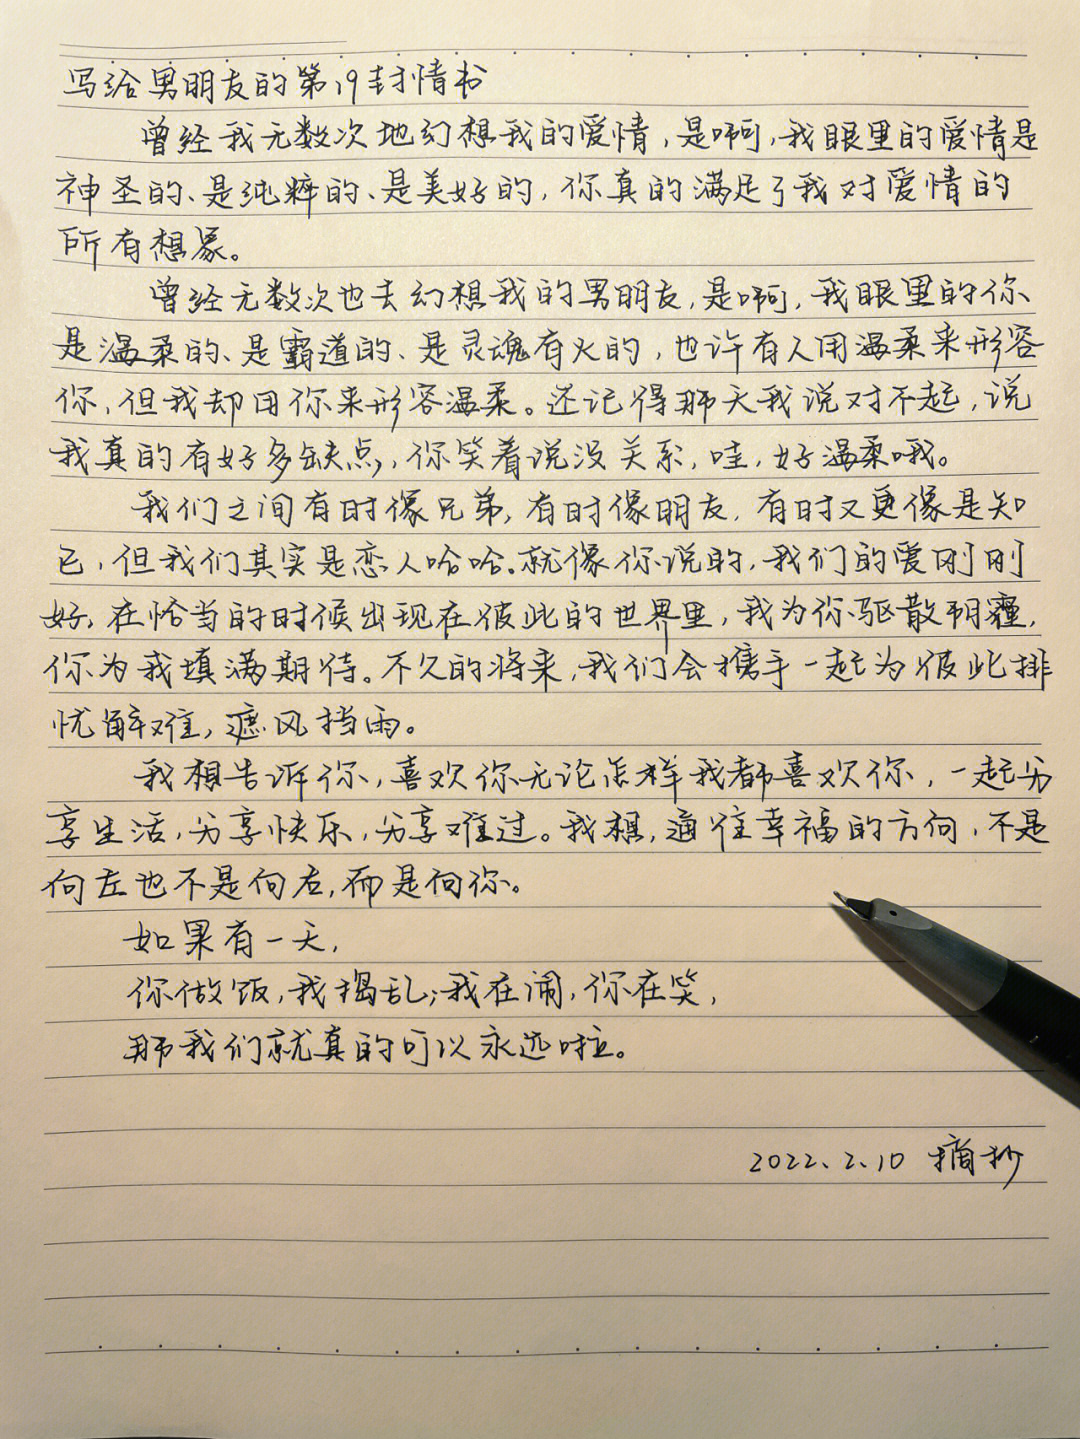 写给男朋友的第19封情书
曾经我无数次地幻想我的爱情,是啊,我眼里的爱情是
神圣的、是纯粹的、是美好的,你真的满足了我对爱情的
所有想象。
曾经无数次也去幻想我的男朋友,是啊,我眼里的你
是温柔的、是霸道的、是灵魂有火的,也许有人用温柔来形容
你,但我却用你来形容温柔。还记得那天我说对不起,说
我真的有好多缺点,你笑着说没关系,哇,好温柔哦。
我们之间有时像兄弟,有时像朋友,有时又更像是知
己,但我们其实是恋人哈哈。就像你说的,我们的爱刚刚
好,在恰当的时候出现在彼此的世界里,我为你驱散阴霾,
你为我填满期待。不久的将来,我们会携手一起为彼此排
忧解难,遮风挡雨。
我想告诉你,喜欢你无论怎样我都喜欢你,一起分
享生活,分享快乐,分享难过。我想,通往幸福的方向,不是
向左也不是向右,而是向你。
如果有一天,
你做饭,我捣乱;我在闹,你在笑,
那我们就真的可以永远啦。
2022.2.10 摘抄